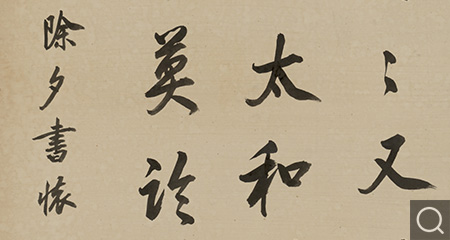 〻又
太和
莫論
除夕書懷